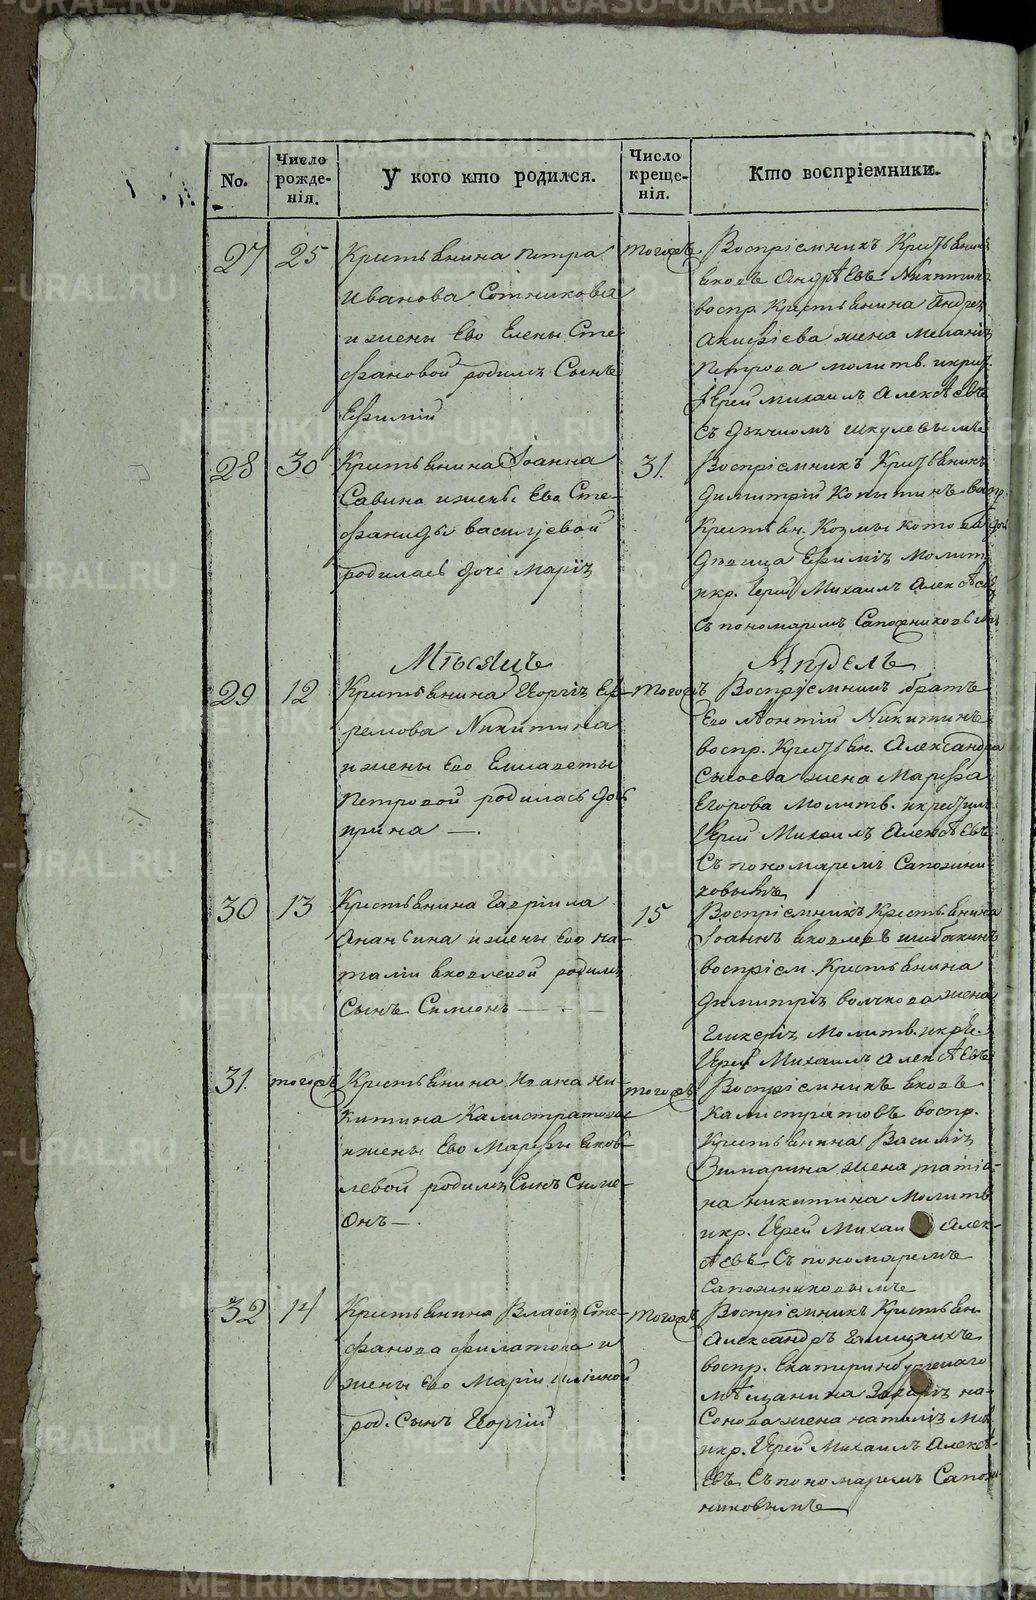 No.
Число рожде-нія.
У кого кто родился.
Число креще-нія.
Кто воспріемники.
27
25
Крестьянина Петра
Иванова Сотникова
и жены Его Елены Сте-
фановой родился Сынъ
Ефимій
тогожъ
Воспріемникъ Крестьянинъ
Яковъ Андрѣевъ Никитинъ
воспр. Крестьянина Андрея
жена Меланія
Петрова молитв. и крест.
Іерей Михаилъ Алексѣевъ
съ дьячкомъ
28
30
Крестьянина Іоанна
Савина и жены Его Сте-
фаниды Васильевой
родилась дочь Марія
31.
Воспріемникъ Крестьянинъ
Димитрій Копитинъ воспр.
Крестьян. Козмы Котова дочь
дѣвица Ефимія Молит.
и кр. Іерей Михаилъ Алексѣевъ
Съ пономаремъ Сапожниковымъ
Мѣсяцъ
Апрель
29
12
Крестьянина Георгія Еф-
ремова Никитина
и жены Его Елисаветы
Петровой родилась дочь
Ирина —.
тогожъ
Воспріемникъ братъ
Его Леонтій Никитинъ
воспр. Крестьян. Александра
Сысоева жена Марфа
Егорова Молитв. и крестилъ
Іерей Михаилъ Алексѣевъ
Съ пономаремъ Сапожни-
ковымъ
30
13
Крестьянина Гавріила
Ананьина и жены Его На-
таліи Яковлевой родился
Сынъ Симеонъ — . —
15
Воспріемникъ Крестьянина
Іоаннъ Яковлевъ
воспріем. Крестьянина
Димитрія Волкова жена
Гликерія Молитв. и кре.
Іерей Михаилъ Алексѣевъ
31.
тогожъ
Крестьянина Ивана Ни-
китина Калистратова
и жены Его Марфы Яков-
левой родился Сынъ Симе-
Онъ —.
тогожъ
Воспріемникъ Яковъ
Калистратовъ воспр.
Крестьянина Василія
жена татіа-
на Никитина Молитв.
и кр. Іерей Михаилъ Алек-
сѣевъ Съ пономаремъ
Сапожниковымъ
32
14
Крестьянина Власія Сте-
фанова Филатова и
жены Его Маріи
род. Сынъ Георгій
тогожъ
Воспріемникъ Крестьян.
Александръ Галицкихъ
воспр. Екатеринбургскаго
мѣщанина Захарія На-
Сонова жена Наталія Мол.
и кр. Іерей Михаилъ Алексѣ-
Евъ Съ пономаремъ Сапож-
никовымъ
METRIKI.GASO-URAL.RU